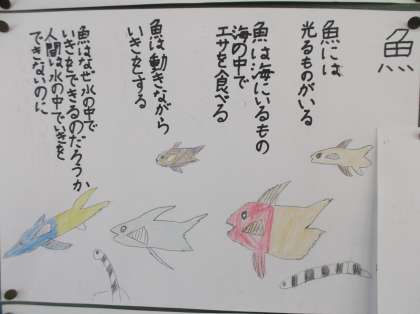 魚
魚には
光るものがいる
魚は海にいるもの
海の中で
エサを食べる
魚は動きながら
いきをする
魚はなぜ水の中で
いきをできるのだろうか
人間は水の中でいきを
できないのに